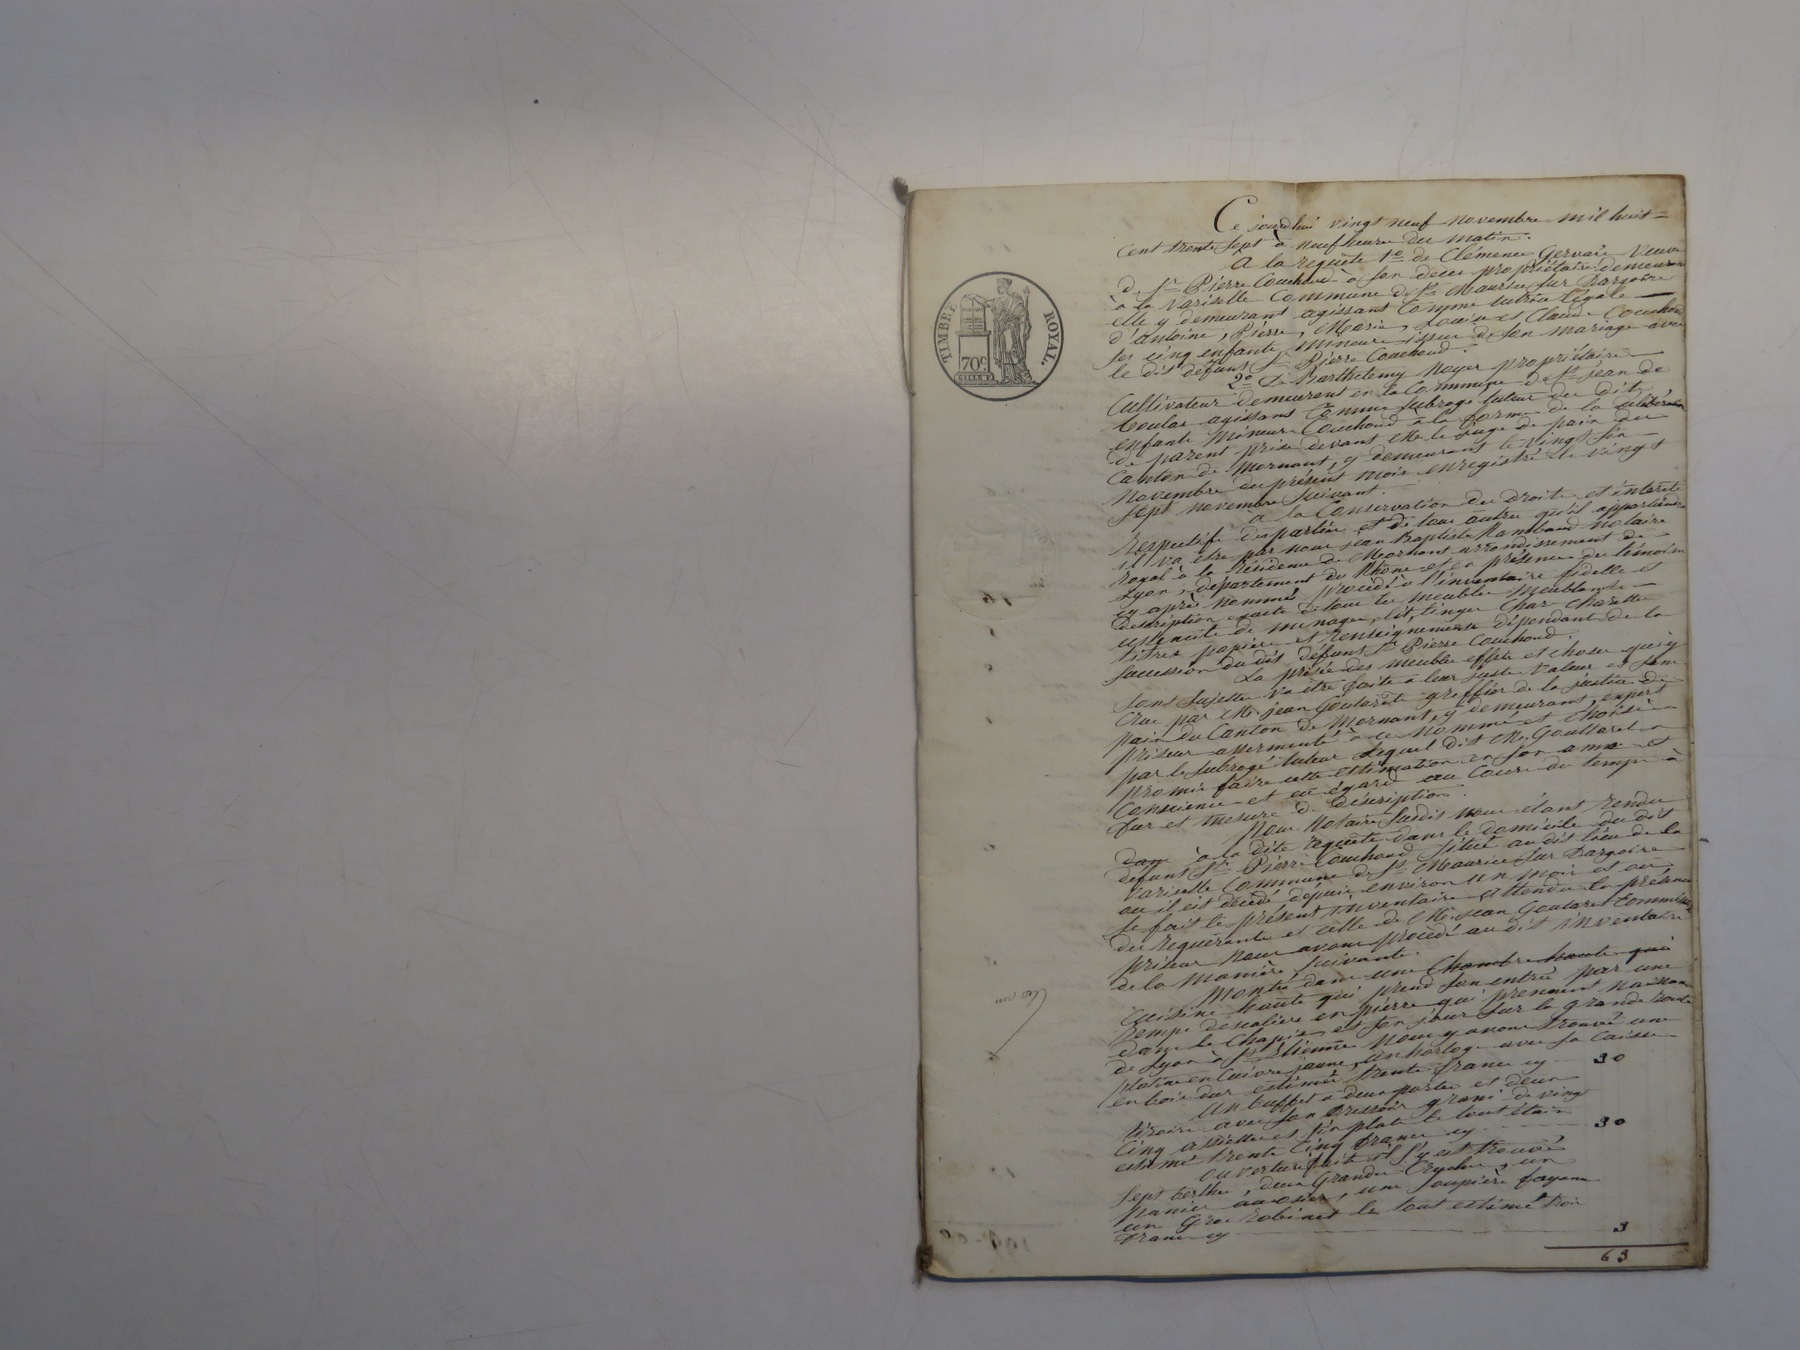 TIMBRE ROYAL.
70c
Ce jourdhui vingt neuf novembre mil huit=
cent trente sept à neuf heures du matin.
A la requête 1o de Clémence Gervais Veuve
de Sr Pierre Couchoud à son deces propriétaire demeurant
à la Variselle Commune de St Maurice sur Dargoire
elle y demeurant agissant Comme tutrice légale
d'antoine, Pierre, Marie, Louise et Claude Couchoud
ses cinq enfants mineurs issus de son mariage avec
le dit défunt Sr Pierre Couchoud.
2o De Barthelemy Noyer propriétaire
Cultivateur demeurant en la Commune de St jean de
Toulas agissant Comme subrogé tuteur des dits
enfants Mineurs Couchoud à la forme de la délibération
de parent prise devant Mr le juge de paix du
Canton de Mornant, y demeurant le vingt six
Novembre du présent mois enregistré le vingt
sept novembre suivant.
à la Conservation des droits et intérêts
Respectifs des parties et de tous autres qu'il appartiendra
il va être par nous jean Baptiste Rambaud notaire
Royal à la Résidence de Mornant arrondissement de
Lyon, département du Rhône et en présence des témoins
cy après nommés procédé à l'inventaire fidelle et
Description exacte de tous les meubles meublants
ustensile de menage, lit, linges Char Charette
titres papiers et renseignements dépendant de la
succession du dit défunt Sr Pierre Couchoud.
La prisée des meubles effets et choses qui y
sont sujettes va être faite à leur juste valeur et sans
Crue par Mr jean Goutaret greffier de la justice de
paix du Canton de Mornant, y demeurant, expert
priseur assermenté à ce Nommé et choisi
par le subrogé tuteur Lequel dit Mr Gouttaret a
promis faire cette estimation en son ame et
Conscience et eu égard au Cours du temps à
fur et mesure de description.
Nous Notaire susdit nous étant rendu
dans à la dite requête dans le domicile du dit
défunt Sr Pierre Couchoud situé au dit lieu de la
Variselle Commune de St Maurice sur Dargoire
ou il est decédé depuis environ un mois et où
se fait le présent inventaire attendu la présence
des Requérants et celle de Mr jean Goutaret Commissaire
priseur nous avons procédé au dit inventaire
de la manière suivante.
Montés dans une Chambre haute qui
Cuisine haute qui prend son entrée par une
Rempe descaliers en pierre qui prennent naissance
dans le Chapis et son jour sur la grande route
de Lyon à St Etienne Nous y avons trouvé une
platine en Cuivre jaune, un horloge avec sa Caisse
en bois dur estimés trente francs cy 30
Un buffet à deux portes et deux
tiroirs avec son Dressoir garni de vingt
Cinq assiettes et six plats le tout étain
estimé trente Cinq francs cy 30
Ouverture faite il s'y est trouvé
sept berthes, deux Grandes Cruches, un
panier en osier, une soupière fayance
un Gros Robinet le tout estimé trois
francs cy 3
63